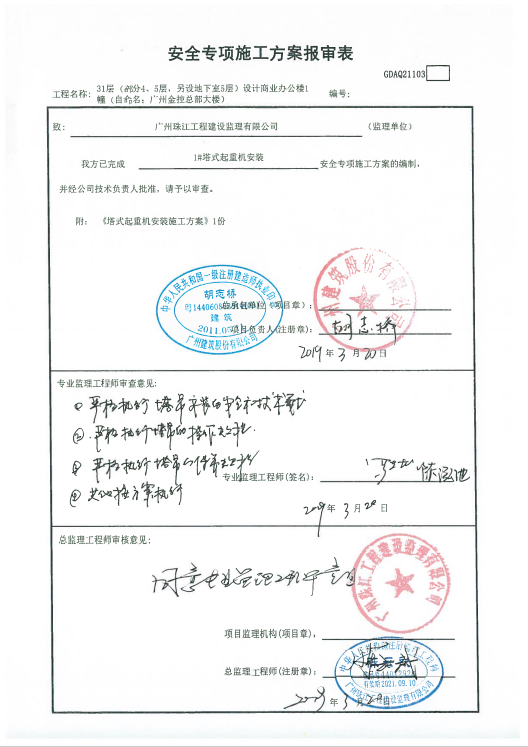 安全专项施工方案报审表
GDAQ21103
工程名称: 31层（部分4、5层，另设地下室5层）设计商业办公楼1
幢（自命名：广州金控总部大楼） 编号:
致: 广州珠江工程建设监理有限公司 （监理单位）
我方已完成 1#塔式起重机安装 安全专项施工方案的编制，
并经公司技术负责人批准，请予以审查。
附： 《塔式起重机安装施工方案》1份
中华人民共和国一级注册建造师执业印章
胡志桥
建筑
广州建筑股份有限公司
广州建筑股份有限公司
总承包单位（项目章）：
项目负责人(注册章): 胡志桥
2019年3月20日
专业监理工程师审查意见:
① 严格执行塔吊安装的安全和技术要求
② 严格执行塔吊的
③ 严格执行塔吊
④ 按方案执行
专业监理工程师(签名):
2019年3月20日
总监理工程师审核意见:
同意专业监理工程师意见
广州珠江工程建设监理有限公司
项目监理机构(项目章),
总监理工程师(注册章):
有效期2021.09.10
广州珠江工程建设监理有限公司
2019年3月20日